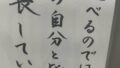 べるので
の自分と
長してい